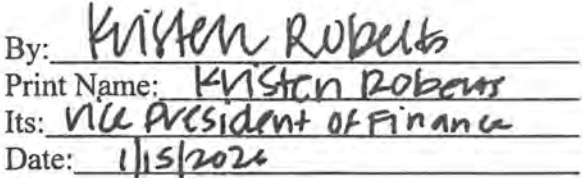 By: Kristen Roberts
Print Name: Kristen Roberts
Its: Vice President of Finance
Date: 1/15/2026